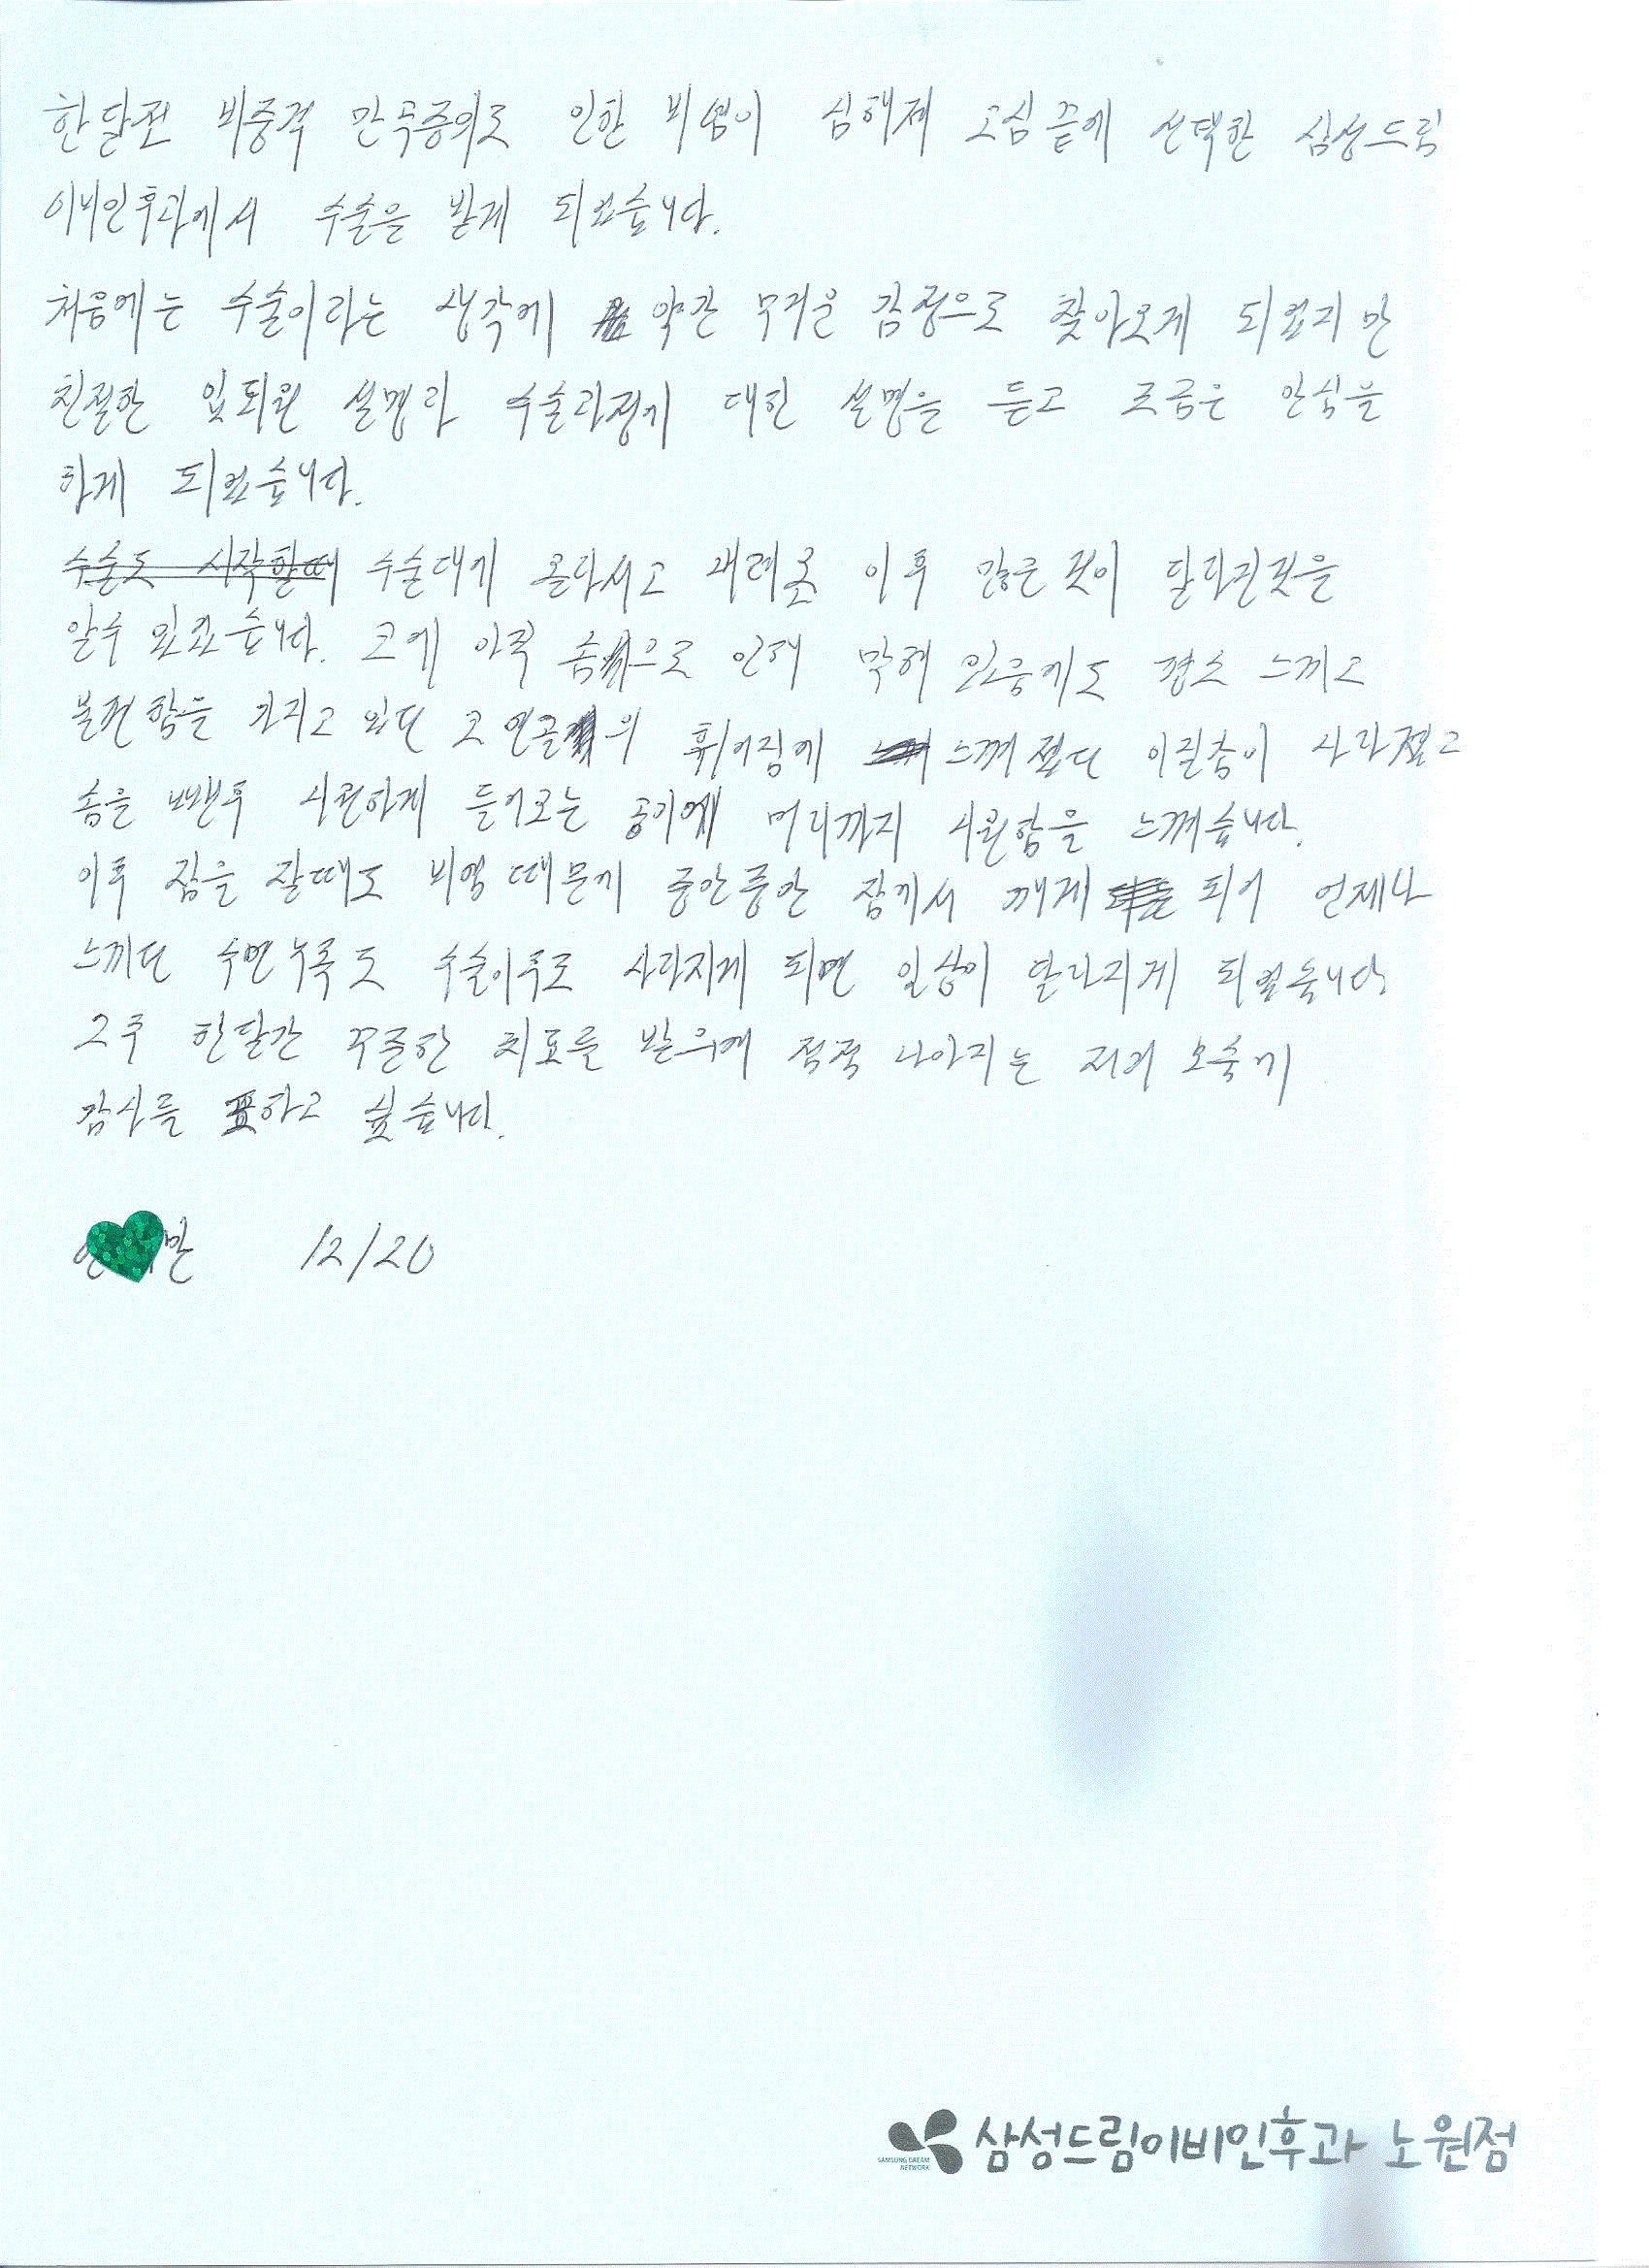 한달전 비중격 만곡증의로 인한 비염이 심해져 고심끝에 선택한 삼성드림
이비인후과에서 수술을 받게 되었습니다.
처음에는 수술이라는 생각에 약간 무거운 감정으로 찾아오게 되었지만
친절한 입퇴원 설명과 수술과정에 대한 설명을 듣고 조금은 안심을
하게 되었습니다.
수술도 시작할때 수술대에 올라서고 이후 많은것이 달라진것을
알수 있었습니다. 코에 아직 솜으로 인해 막혀 있음에도 평소 느끼고
불편함을 가지고 있던 코 연골의 휘어짐에 느껴졌던 이질감이 사라졌고
솜을 뺀후 시원하게 들어오는 공기에 머리까지 시원함을 느껴습니다.
이후 잠을 잘때도 비염 때문에 중안중안 잠에서 깨게 되어 언제나
느끼던 수면부족도 수술이후로 사라지게 되면 일상이 달라지게 되었습니다
그후 한달간 꾸준한 치료를 받으며 점점 나아지는 저의 모습에
감사를 표하고 싶습니다.
민 12/20
SAMSUNG DREAM
NETWORK
삼성드림이비인후과 노원점